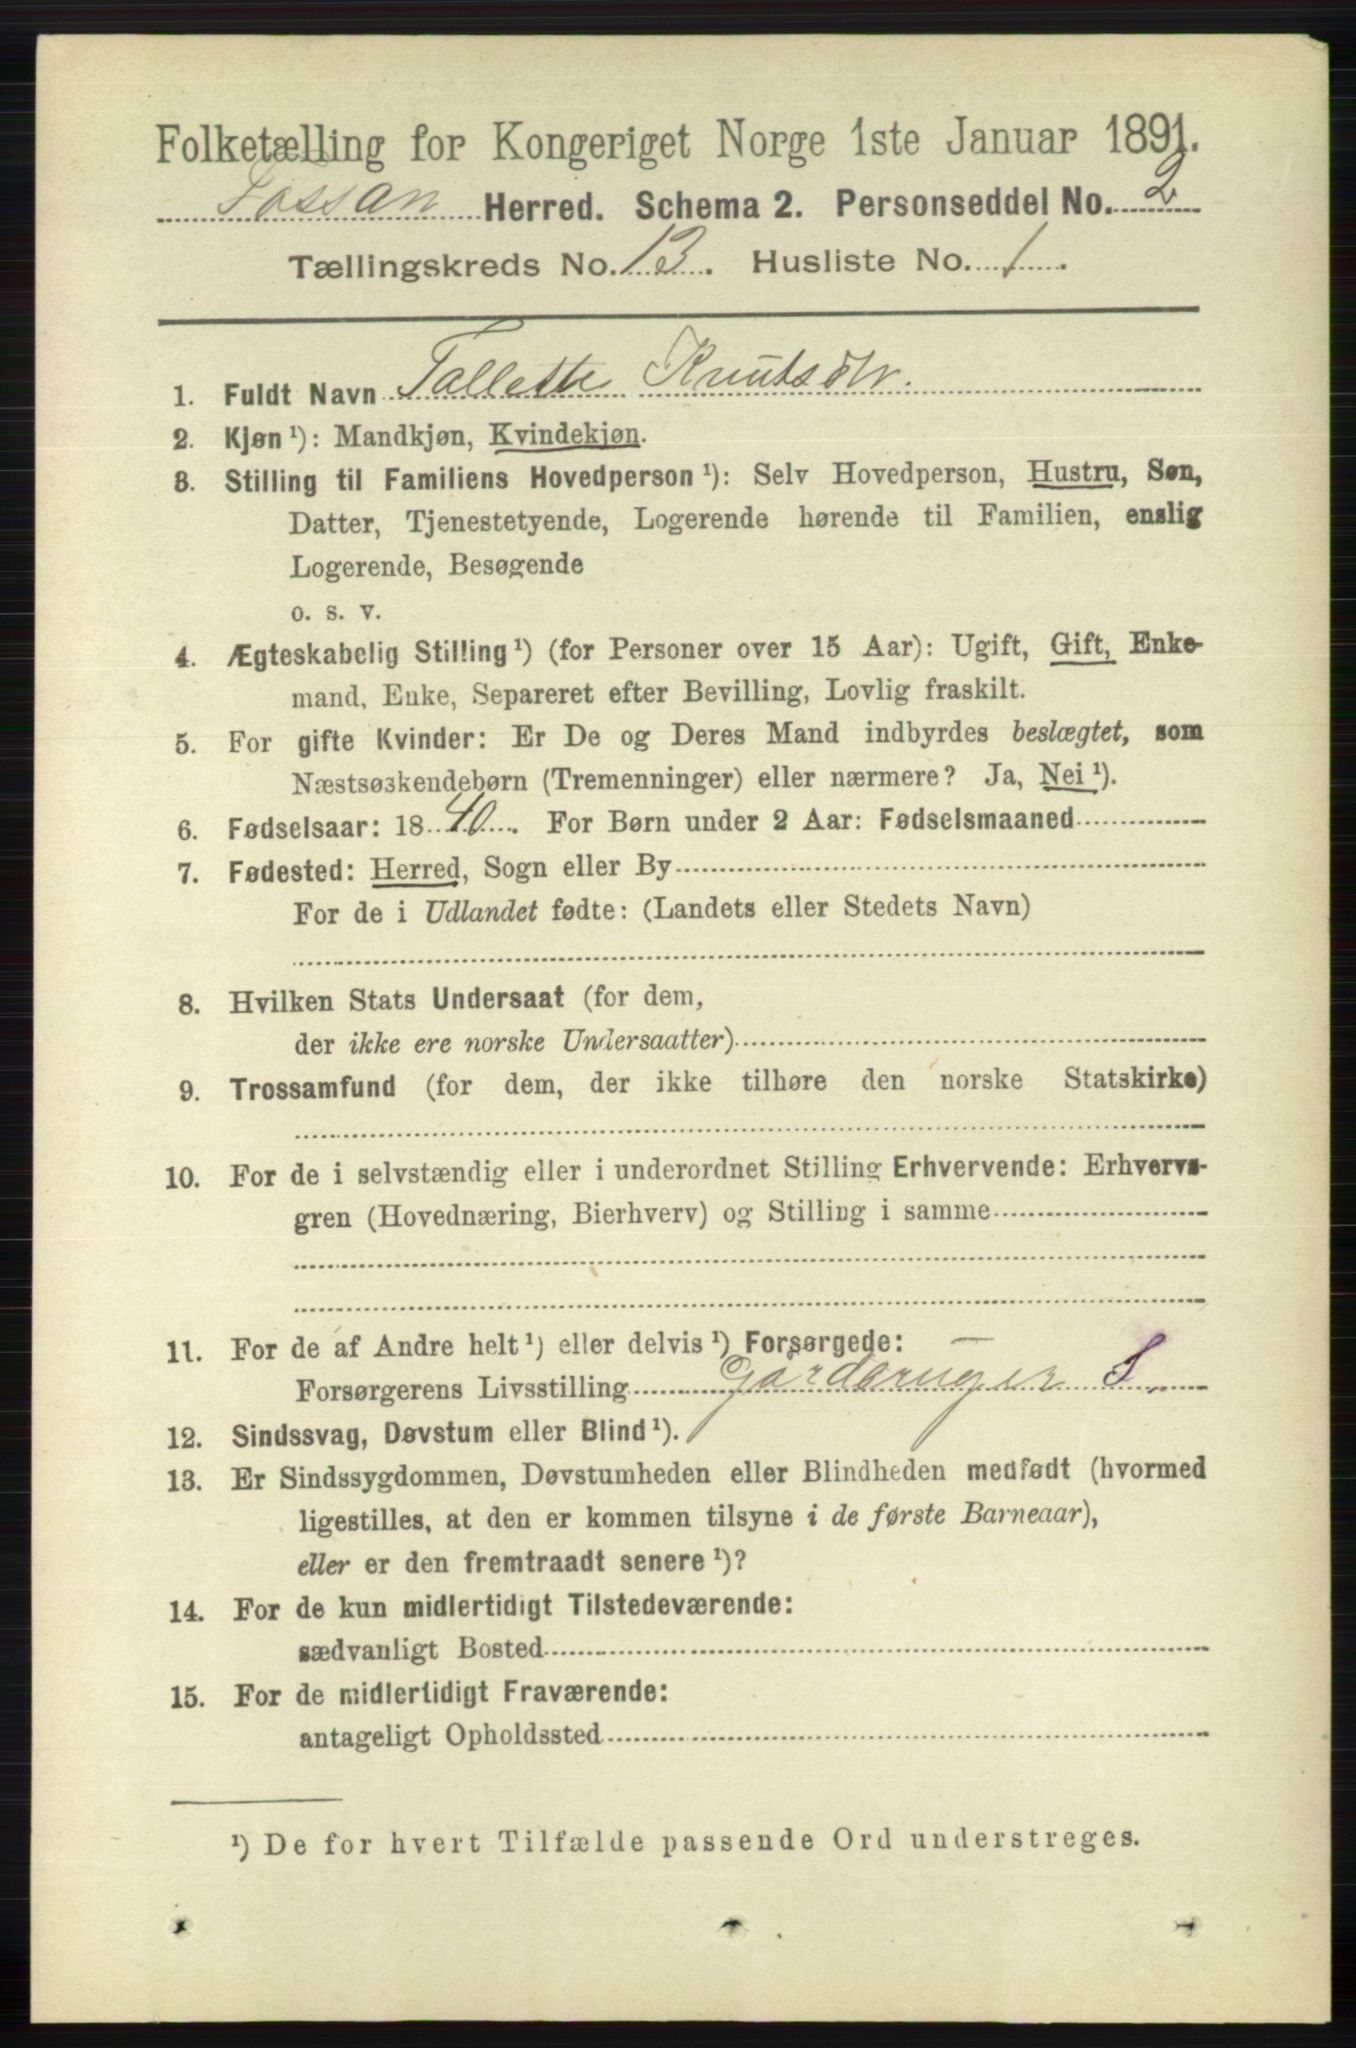 Folketælling for Kongeriget Norge 1ste Januar 1891.
Fossan Herred. Schema 2. Personseddel No. 2
Tællingskreds No. 13. Husliste No. 1.
1. Fuldt Navn Tallette Knutsdtr.
2. Kjøn ¹): Mandkjøn, Kvindekjøn.
3. Stilling til Familiens Hovedperson ¹): Selv Hovedperson, Hustru, Søn,
Datter, Tjenestetyende, Logerende hørende til Familien, enslig
Logerende, Besøgende
o. s. v.
4. Ægteskabelig Stilling ¹) (for Personer over 15 Aar): Ugift, Gift, Enke-
mand, Enke, Separeret efter Bevilling, Lovlig fraskilt.
5. For gifte Kvinder: Er De og Deres Mand indbyrdes beslægtet, som
Næstsøskendebørn (Tremenninger) eller nærmere? Ja, Nei ¹).
6. Fødselsaar: 1840. For Børn under 2 Aar: Fødselsmaaned
7. Fødested: Herred, Sogn eller By
For de i Udlandet fødte: (Landets eller Stedets Navn)
8. Hvilken Stats Undersaat (for dem,
der ikke ere norske Undersaatter)
9. Trossamfund (for dem, der ikke tilhøre den norske Statskirke)
10. For de i selvstændig eller i underordnet Stilling Erhvervende: Erhvervs-
gren (Hovednæring, Bierhverv) og Stilling i samme
11. For de af Andre helt ¹) eller delvis ¹) Forsørgede:
Forsørgerens Livsstilling Gårdbruger S.
12. Sindssvag, Døvstum eller Blind ¹).
13. Er Sindssygdommen, Døvstumheden eller Blindheden medfødt (hvormed
ligestilles, at den er kommen tilsyne i de første Barneaar),
eller er den fremtraadt senere ¹)?
14. For de kun midlertidigt Tilstedeværende:
sædvanligt Bosted
15. For de midlertidigt Fraværende:
antageligt Opholdssted
¹) De for hvert Tilfælde passende Ord understreges.